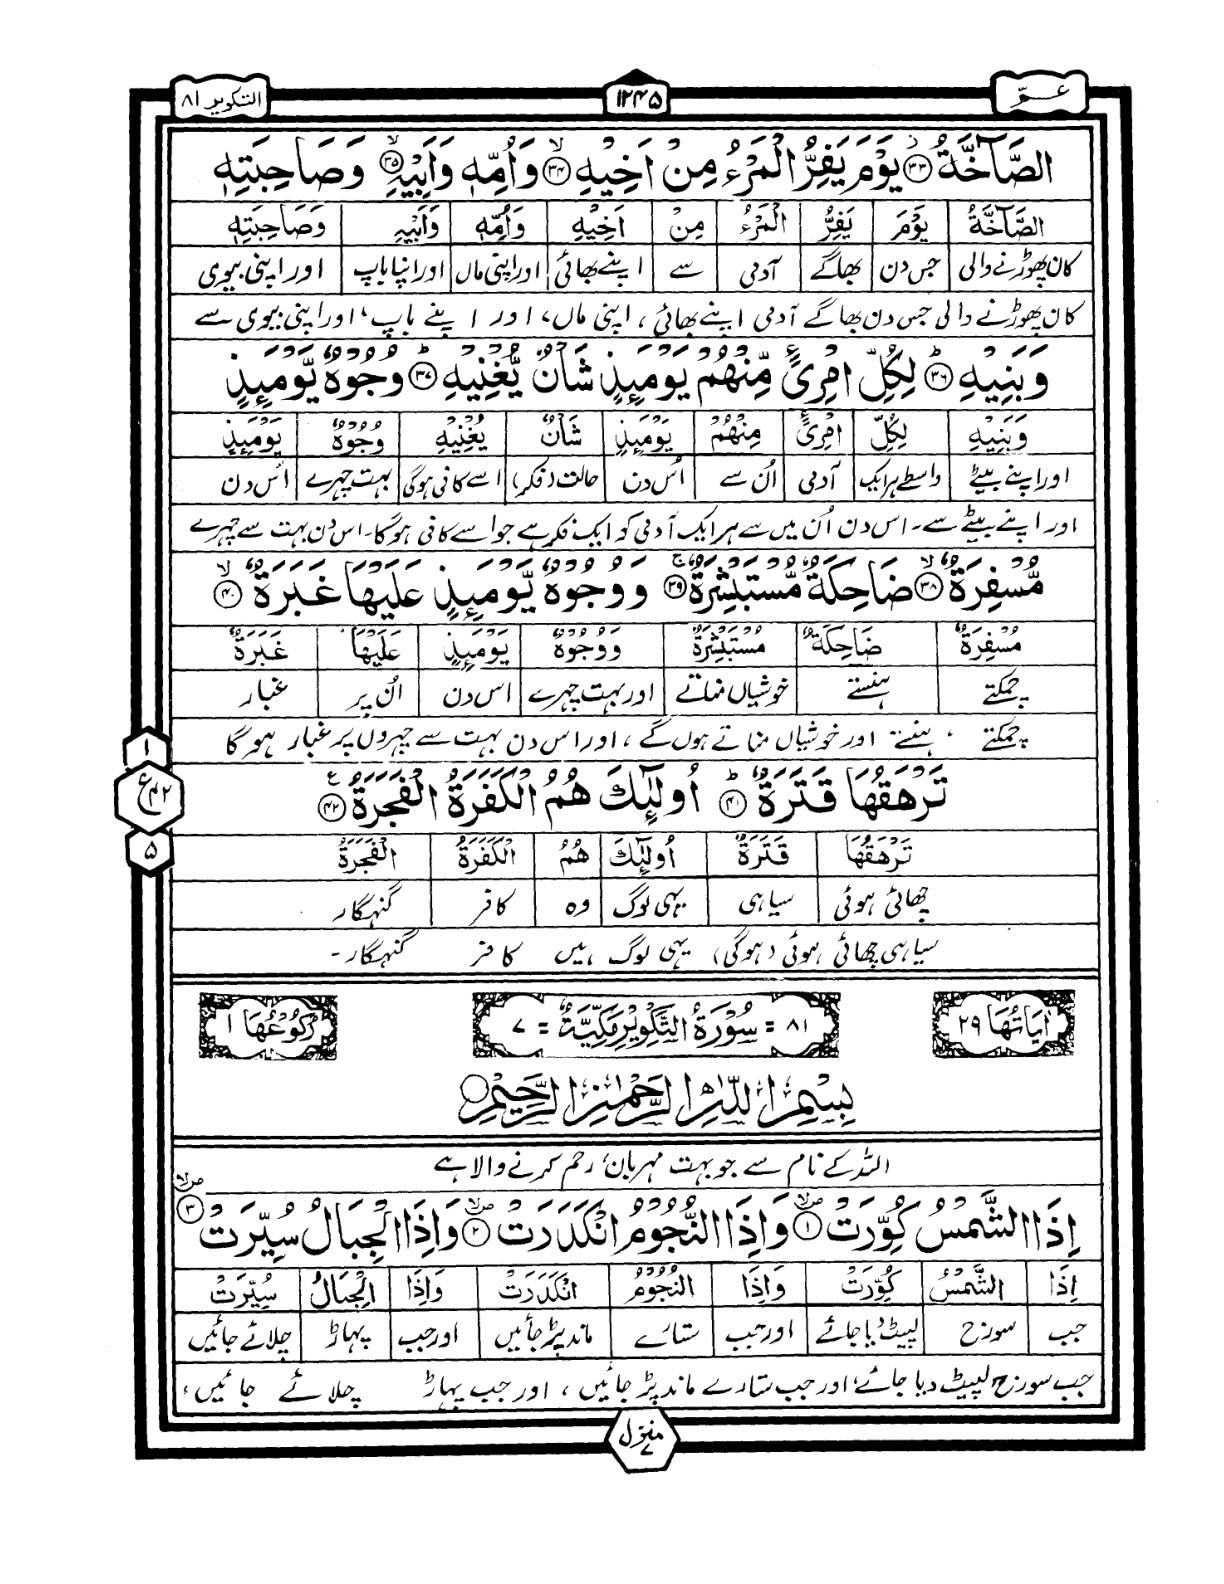 عـمّ
۱۲۴۵
التکویر ۸۱
الصَّآخَّةُ ﴿۳۳﴾ یَوْمَ یَفِرُّ الْمَرْءُ مِنْ اَخِیْهِ ﴿۳۴﴾ وَاُمِّهٖ وَاَبِیْهِ ﴿۳۵﴾ وَصَاحِبَتِهٖ
الصَّآخَّةُ یَوْمَ یَفِرُّ الْمَرْءُ مِنْ اَخِیْهِ وَاُمِّهٖ وَاَبِیْهِ وَصَاحِبَتِهٖ
کان پھوڑنے والی جس دن بھاگے آدمی سے اپنے بھائی اور اپنی ماں اور اپنا باپ اور اپنی بیوی
کان پھوڑنے والی جس دن بھاگے آدمی اپنے بھائی، اپنی ماں، اور اپنے باپ، اور اپنی بیوی سے
وَبَنِیْهِ ﴿۳۶﴾ لِکُلِّ امْرِیٍٔ مِّنْهُمْ یَوْمَىِٕذٍ شَاْنٌ یُّغْنِیْهِ ﴿۳۷﴾ وُجُوْهٌ یَّوْمَىِٕذٍ
وَبَنِیْهِ لِکُلِّ امْرِیٍٔ مِنْهُمْ یَوْمَىِٕذٍ شَاْنٌ یُغْنِیْهِ وُجُوْهٌ یَوْمَىِٕذٍ
اور اپنے بیٹے واسطے ہر ایک آدمی اُن سے اُس دن حالت (فکر) اسے کافی ہوگی بہت چہرے اُس دن
اور اپنے بیٹے سے۔ اس دن اُن میں سے ہر ایک آدمی کو ایک فکر ہے جو اسے کافی ہوگا۔ اس دن بہت سے چہرے
مُّسْفِرَةٌ ﴿۳۸﴾ ضَاحِکَةٌ مُّسْتَبْشِرَةٌ ﴿۳۹﴾ وَوُجُوْهٌ یَّوْمَىِٕذٍ عَلَیْهَا غَبَرَةٌ ﴿۴۰﴾
مُسْفِرَةٌ ضَاحِکَةٌ مُسْتَبْشِرَةٌ وَوُجُوْهٌ یَوْمَىِٕذٍ عَلَیْهَا غَبَرَةٌ
چمکتے ہنستے خوشیاں مناتے اور بہت چہرے اس دن اُن پر غبار
چمکتے، ہنستے اور خوشیاں مناتے ہوں گے، اور اس دن بہت سے چہروں پر غبار ہوگا
تَرْهَقُهَا قَتَرَةٌ ﴿۴۱﴾ اُولٰٓىِٕکَ هُمُ الْکَفَرَةُ الْفَجَرَةُ ﴿۴۲﴾
تَرْهَقُهَا قَتَرَةٌ اُولٰٓىِٕکَ هُمُ الْکَفَرَةُ الْفَجَرَةُ
چھائی ہوئی سیاہی یہی لوگ وہ کافر گنہگار
سیاہی چھائی ہوئی (ہوگی) یہی لوگ ہیں کافر گنہگار۔
۱
ع
۴۲
۵
اٰیَاتُهَا ۲۹
۸۱ = سُوْرَةُ التَّکْوِیْرِ مَکِّیَّةٌ = ۷
رُکُوْعُهَا ۱
بِسْمِ اللّٰهِ الرَّحْمٰنِ الرَّحِیْمِ
اللہ کے نام سے جو بہت مہربان، رحم کرنے والا ہے
اِذَا الشَّمْسُ کُوِّرَتْ ﴿۱﴾ وَاِذَا النُّجُوْمُ انْکَدَرَتْ ﴿۲﴾ وَاِذَا الْجِبَالُ سُیِّرَتْ ﴿۳﴾
اِذَا الشَّمْسُ کُوِّرَتْ وَاِذَا النُّجُوْمُ انْکَدَرَتْ وَاِذَا الْجِبَالُ سُیِّرَتْ
جب سورج لپیٹ دیا جائے اور جب ستارے ماند پڑ جائیں اور جب پہاڑ چلائے جائیں
جب سورج لپیٹ دیا جائے، اور جب ستارے ماند پڑ جائیں، اور جب پہاڑ چلائے جائیں،
منزل ۷